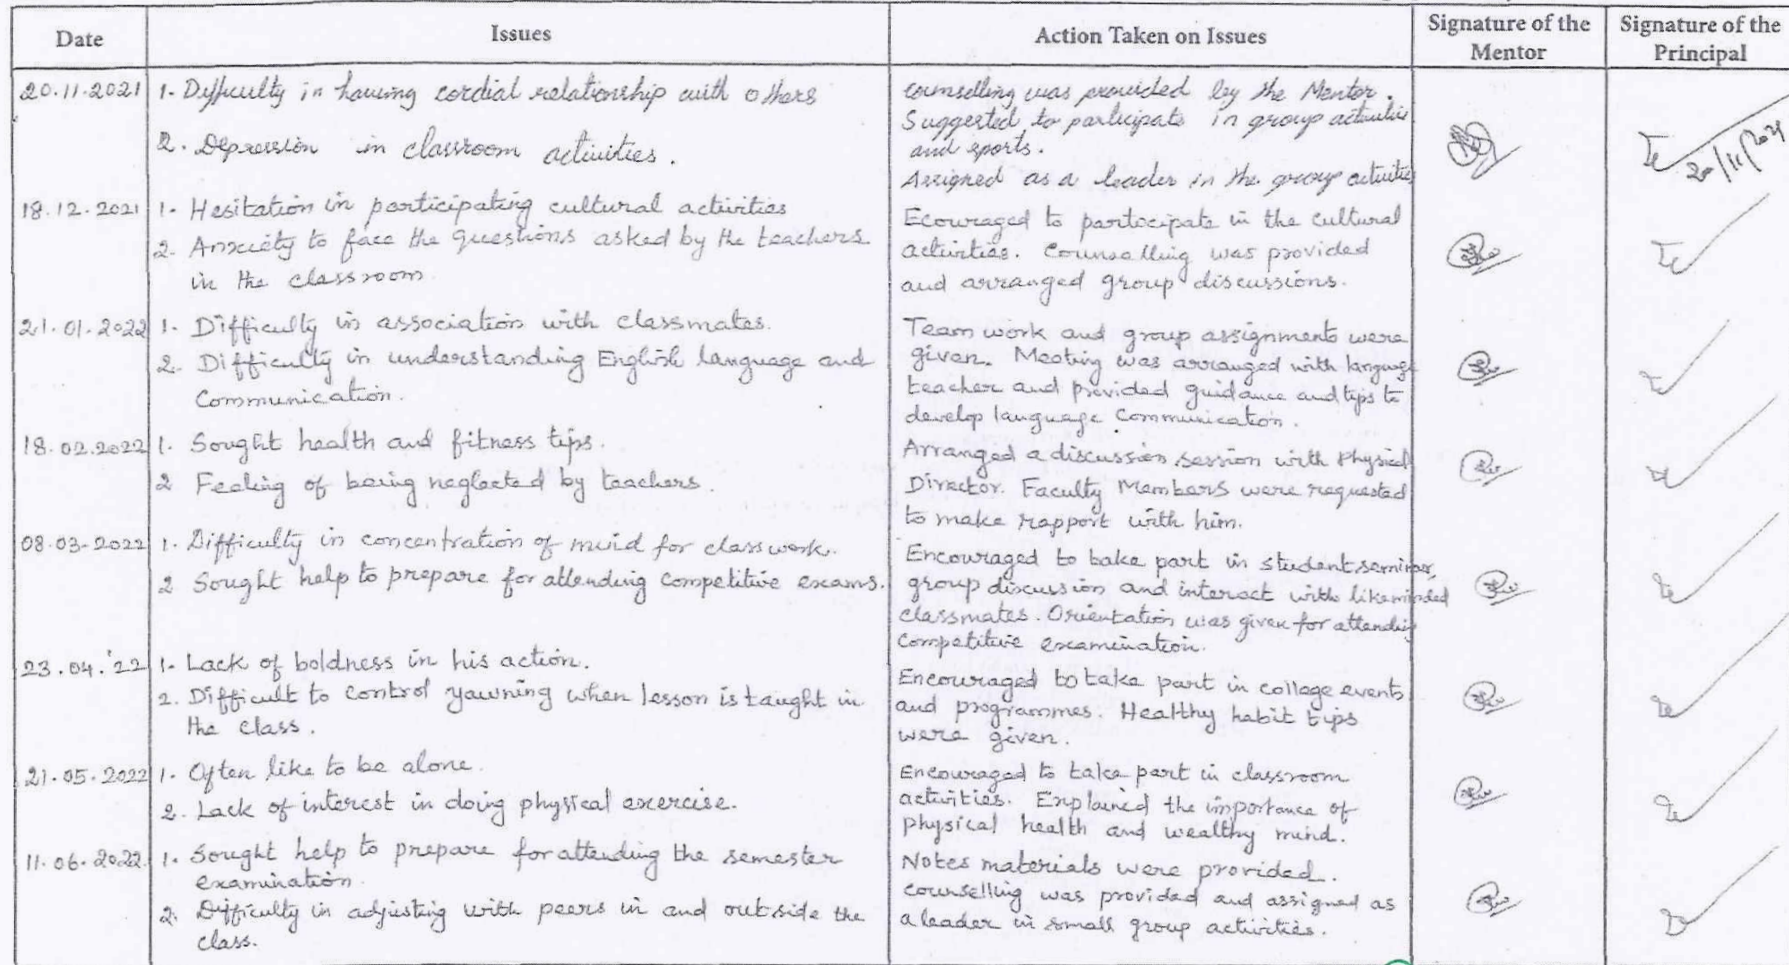 Date
Issues
Action Taken on Issues
Signature of the
Mentor
Signature of the
Principal
20.11.2021
1. Difficulty in having cordial relationship with others
2. Depression in classroom activities.
counselling was provided by the Mentor.
Suggested to participate in group activities
and sports.
Assigned as a leader in the group activities
20/11/2021
18.12.2021
1. Hesitation in participating cultural activities
2. Anxiety to face the questions asked by the teachers
in the classroom
Ecouraged to participate in the cultural
activities. Counselling was provided
and arranged group discussions.
21.01.2022
1. Difficulty in association with classmates.
2. Difficulty in understanding English language and
Communication.
Team work and group assignments were
given. Meeting was arranged with language
teacher and provided guidance and tips to
develop language Communication.
18.02.2022
1. Sought health and fitness tips.
2 Feeling of being neglected by teachers.
Arranged a discussion session with Physical
Director. Faculty Members were requested
to make rapport with him.
08.03.2022
1. Difficulty in concentration of mind for classwork.
2 Sought help to prepare for attending Competitive exams.
Encouraged to take part in student seminar,
group discussion and interact with likeminded
classmates. Orientation was given for attending
Competitive examination.
23.04.'22
1. Lack of boldness in his action.
2. Difficult to control yawning when lesson is taught in
the class.
Encouraged to take part in college events
and programmes. Healthy habit tips
were given.
21.05.2022
1. Often like to be alone.
2. Lack of interest in doing physical exercise.
Encouraged to take part in classroom
activities. Explained the importance of
Physical health and wealthy mind.
11.06.2022
1. Sought help to prepare for attending the semester
examination.
2. Difficulty in adjusting with peers in and outside the
class.
Notes materials were provided.
Counselling was provided and assigned as
a leader in small group activities.